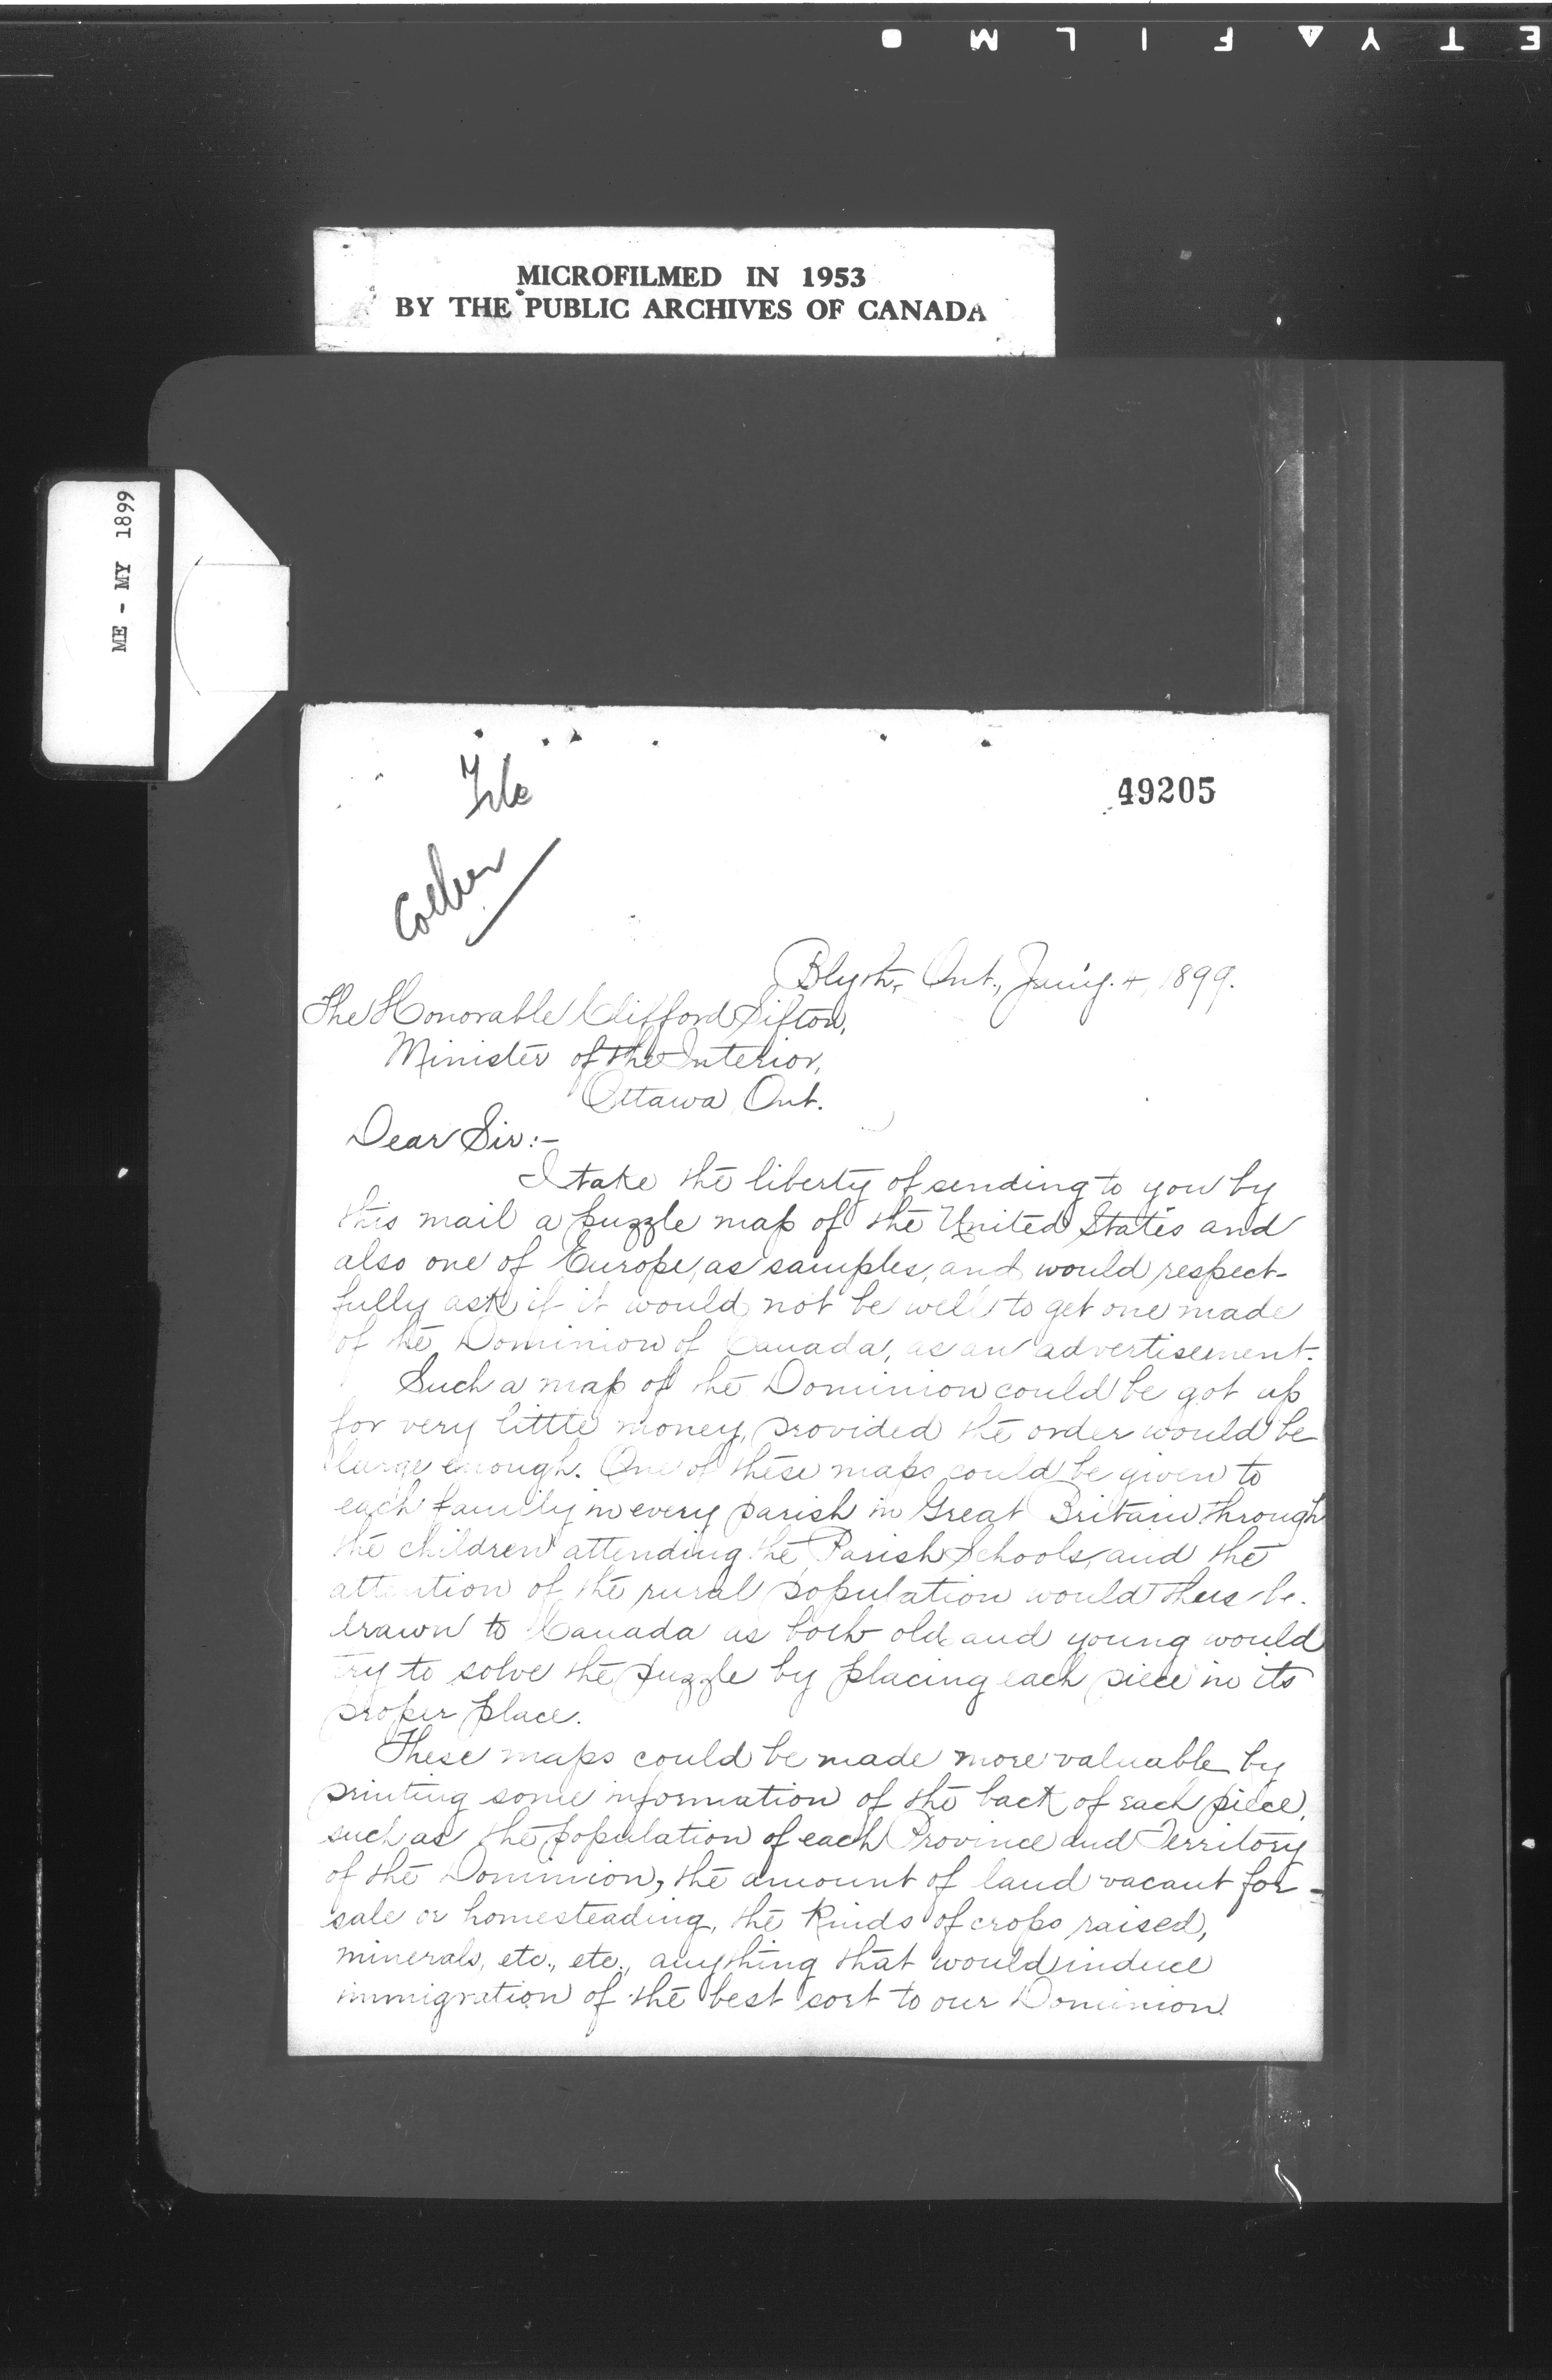 ETY FILM
MICROFILMED IN 1953
BY THE PUBLIC ARCHIVES OF CANADA
ME - MY 1899
File
49205
Blyth, Ont., Jan'y. 4, 1899.
The Honorable Clifford Sifton,
Minister of the Interior,
Ottawa Ont.
Dear Sir:-
I take the liberty of sending to you by
this mail a puzzle map of the United States and
also one of Europe, as samples, and would respect-
fully ask if it would not be well to get one made
of the Dominion of Canada, as an advertisement.
Such a map of the Dominion could be got up
for very little money, provided the order would be
large enough. One of these maps could be given to
each family in every parish in Great Britain through
the children attending the Parish Schools, and the
attention of the rural population would thus be
drawn to Canada as both old and young would
try to solve the puzzle by placing each piece in its
proper place.
These maps could be made more valuable by
printing some information of the back of each piece,
such as the population of each Province and Territory
of the Dominion, the amount of land vacant for
sale or homesteading, the kinds of crops raised,
minerals, etc., etc., anything that would induce
immigration of the best sort to our Dominion.